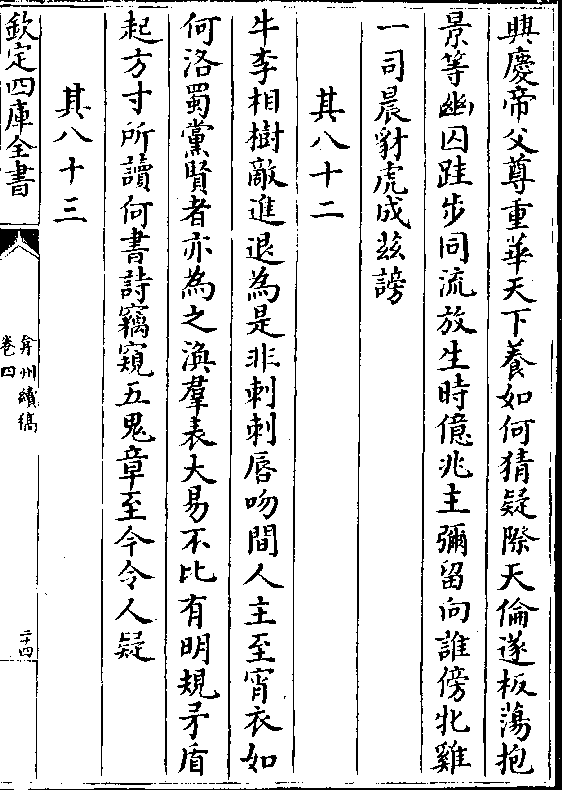 興慶帝父尊重華天下養如何猜疑際天倫遂板蕩抱
景等幽囚跬步同流放生時億兆主彌留向誰傍牝雞
一司晨豺虎成茲謗
其八十二
牛李相樹敵進退為是非刺刺唇吻間人主至宵衣如
何洛蜀黨賢者亦為之渙羣表大易不比有明規矛盾
起方寸所讀何書詩竊窺五鬼章至今令人疑
其八十三
欽定四庫全書
弇州續稿
卷四
二十四